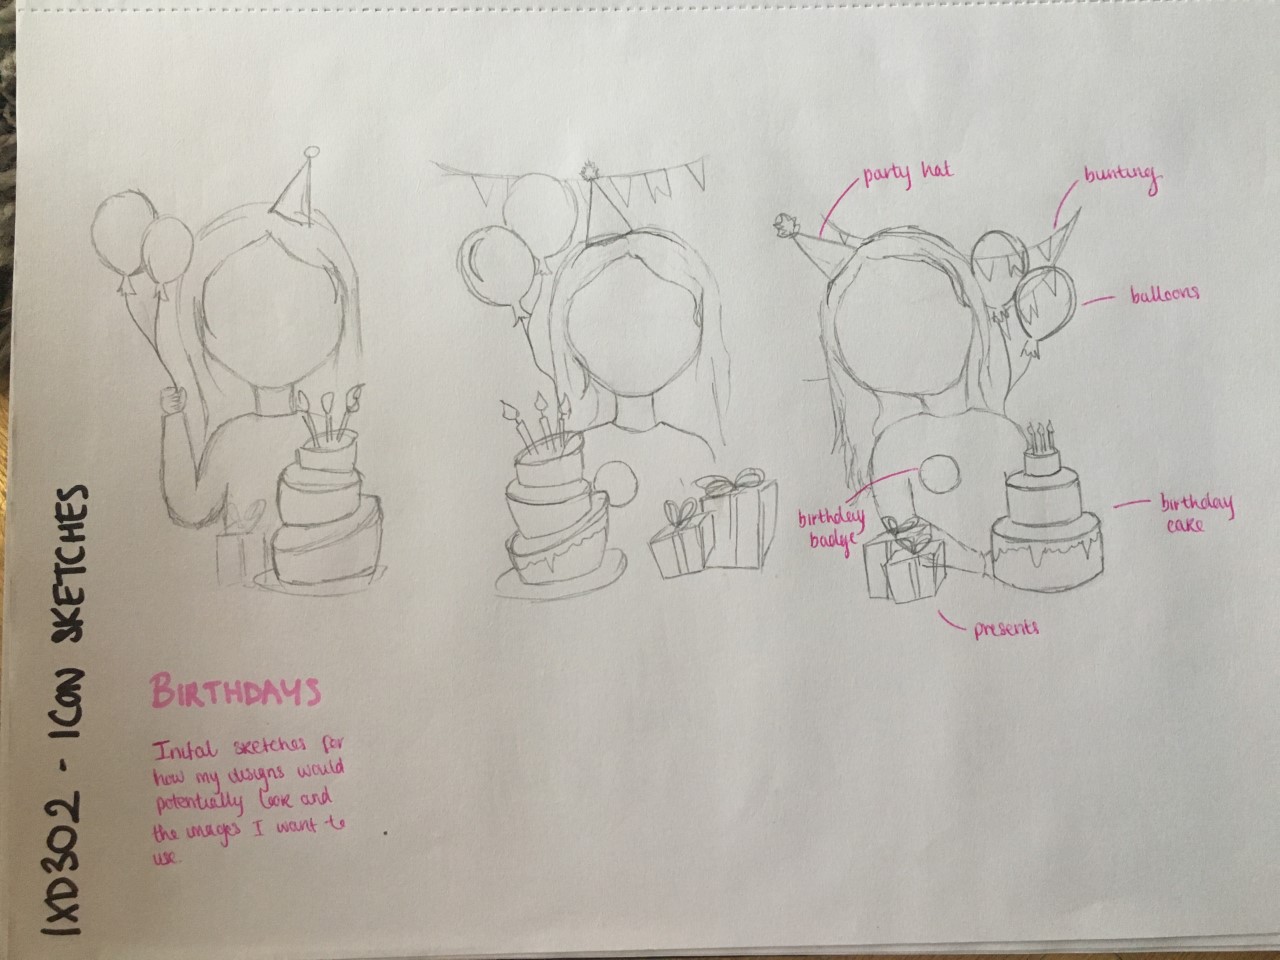 IXD302 - ICON SKETCHES
party hat
bunting
balloons
birthday
badge
birthday
cake
presents
BIRTHDAYS
Inital sketches for
how my designs would
potentially look and
the images I want to
use.